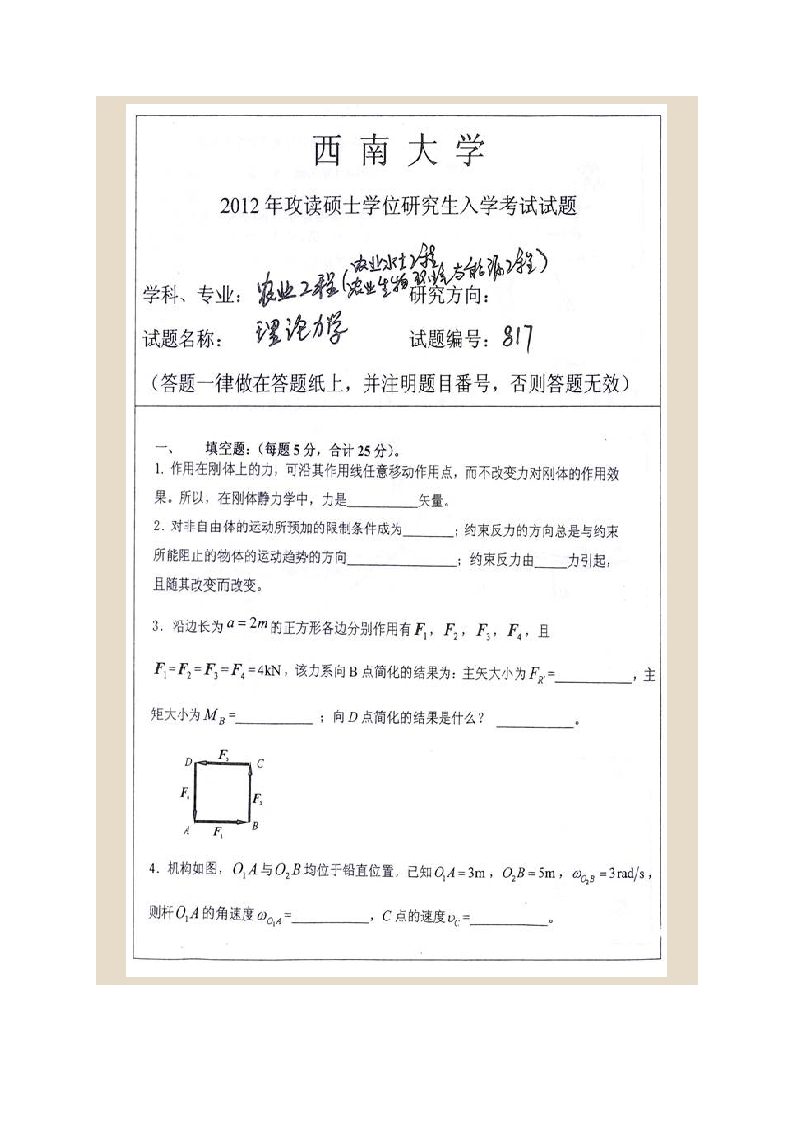 西南大学
2012年攻读硕士学位研究生入学考试试题
农业水土工程
学科、专业：农业工程(农业生物环境与能源工程) 研究方向：
试题名称： 理论力学 试题编号：817
（答题一律做在答题纸上，并注明题目番号，否则答题无效）
一、 填空题：（每题5分，合计25分）。
1. 作用在刚体上的力，可沿其作用线任意移动作用点，而不改变力对刚体的作用效
果。所以，在刚体静力学中，力是__________矢量。
2．对非自由体的运动所预加的限制条件成为_______；约束反力的方向总是与约束
所能阻止的物体的运动趋势的方向________________；约束反力由_____力引起，
且随其改变而改变。
3．沿边长为 a = 2m 的正方形各边分别作用有 F₁，F₂，F₃，F₄，且
F₁=F₂=F₃=F₄=4kN，该力系向 B 点简化的结果为：主矢大小为 F_R'=___________，主
矩大小为 M_B =___________ ；向 D 点简化的结果是什么？ ___________。
D F₃ C
F₄ F₂
A F₁ B
4．机构如图，O₁A 与 O₂B 均位于铅直位置，已知 O₁A = 3m，O₂B = 5m，ω_O₂B = 3 rad/s，
则杆 O₁A 的角速度 ω_O₁A =___________，C 点的速度 υ_C =___________。